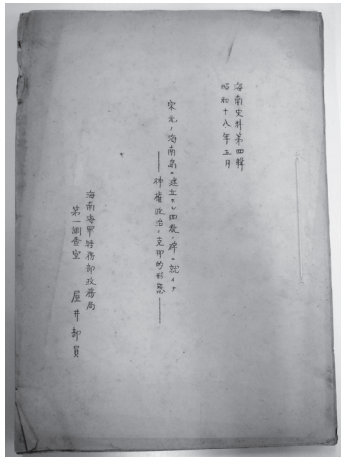 海南史料第四輯
昭和十八年三月
宋元ノ海南島ニ建立セル四教ノ碑ニ就イテ
神権政治ノ克甲的形態
海南海軍特務部政務局
第一調査室 屋井部員